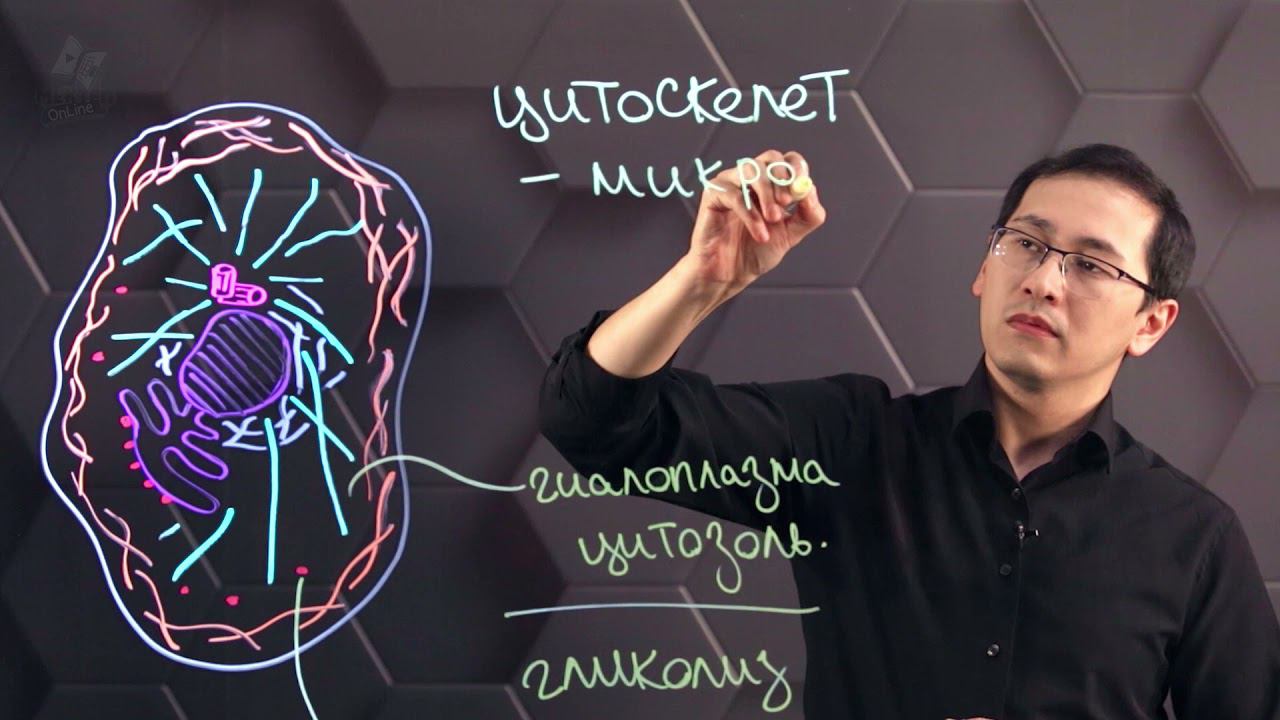 цитоскелет
- микро
гиалоплазма
цитозоль.
гликолиз
OnLine